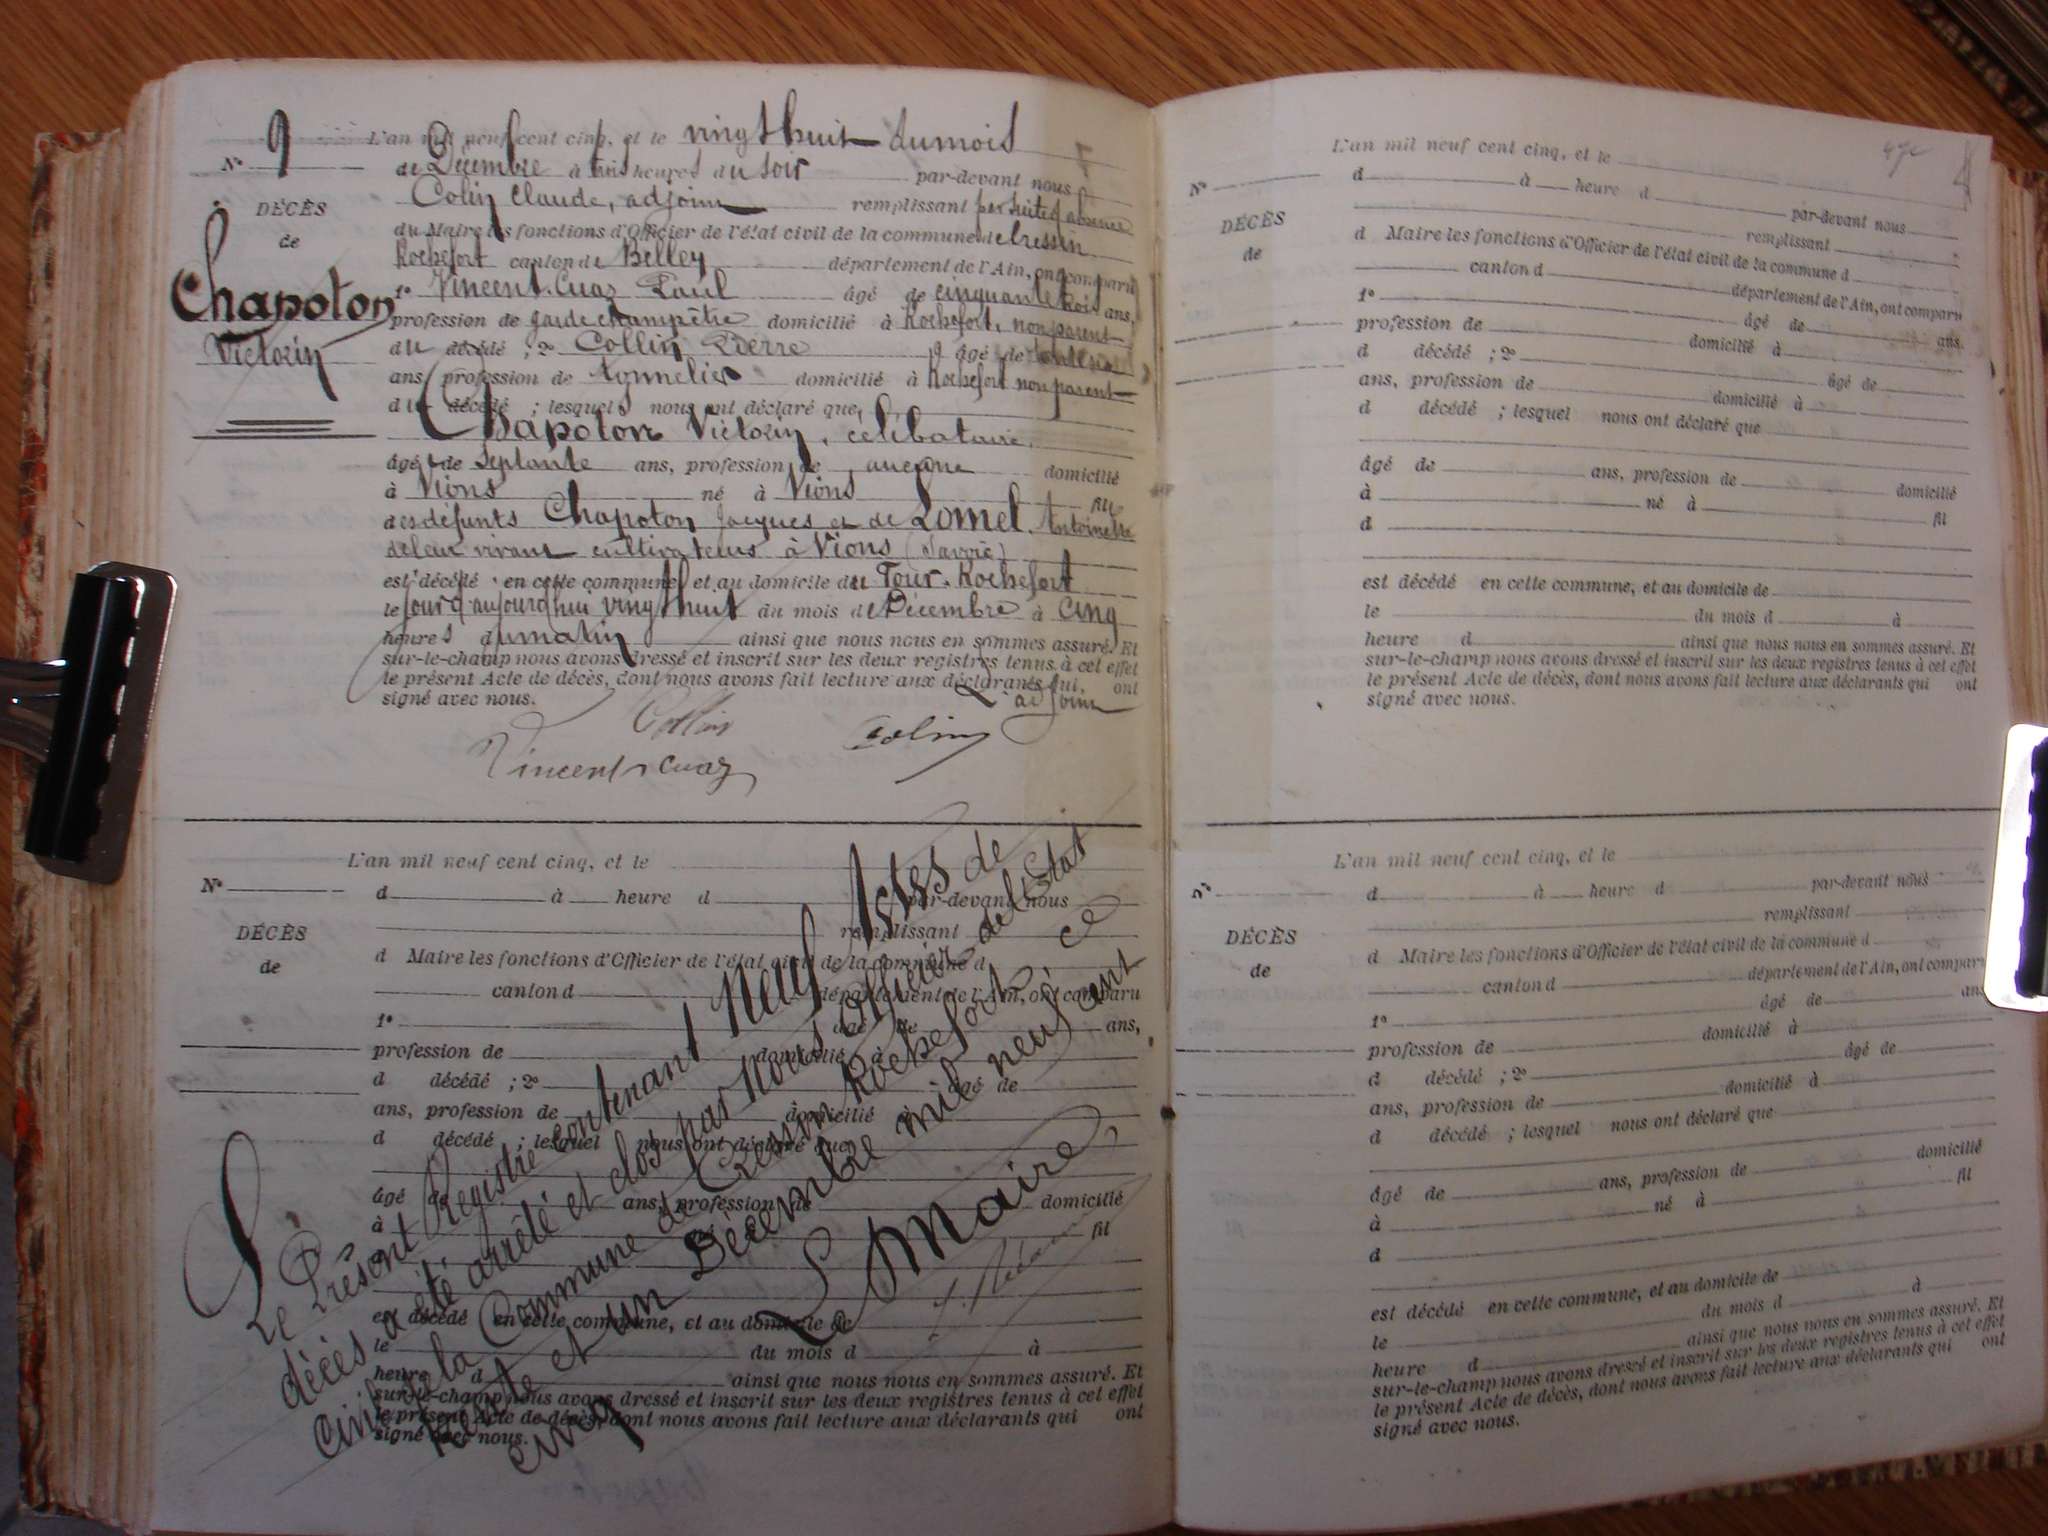 L'an mil neuf cent cinq, et le vingt huit du mois
N° 9
de Décembre à trois heures du soir par-devant nous
Colin Claude, adjoint remplissant par suite d'absence
DÉCÈS
de
Chapoton
Victorin
du Maire les fonctions d'Officier de l'état civil de la commune de Cressin
Rochefort canton de Belley département de l'Ain, ont comparu
1° Vincent-Cuaz Paul âgé de cinquante trois ans,
profession de garde champêtre domicilié à Rochefort, non parent
du décédé ; 2° Collin Pierre âgé de
ans, profession de tonnelier domicilié à Rochefort non parent
du décédé ; lesquels nous ont déclaré que,
Chapoton Victorin, célibataire,
âgé de septante ans, profession de aucune domicilié
à Vions né à Vions fils
des défunts Chapoton Jacques et de Lomel Antoinette
de leur vivant cultivateurs à Vions (Savoie)
est décédé en cette commune, et au domicile du Four. Rochefort
le jour d'aujourd'hui vingt huit du mois de Décembre à cinq
heures du matin ainsi que nous nous en sommes assuré. Et
sur-le-champ nous avons dressé et inscrit sur les deux registres tenus à cet effet
le présent Acte de décès, dont nous avons fait lecture aux déclarants qui, ont
signé avec nous. L'adjoint
Collin
Vincent cuaz Colin
L'an mil neuf cent cinq, et le
N°
d à heure d par-devant nous
remplissant
DÉCÈS
de
d Maire les fonctions d'Officier de l'état civil de la commune d
canton d département de l'Ain, ont comparu
1° âgé de ans,
profession de domicilié à
d décédé ; 2° âgé de
ans, profession de domicilié à
d décédé ; lesquel nous ont déclaré que
âgé de ans, profession de domicilié
à né à fil
d
est décédé en cette commune, et au domicile de
le du mois d à
heure d ainsi que nous nous en sommes assuré. Et
sur-le-champ nous avons dressé et inscrit sur les deux registres tenus à cet effet
le présent Acte de décès, dont nous avons fait lecture aux déclarants qui ont
signé avec nous.
Le Présent Registre contenant Neuf Actes de
décès a été arrêté et clos par Nous Officier de l'Etat
civil de la Commune de Cressin Rochefort ce
trente et un Décembre mil neuf cent
cinq
Le Maire,
L'an mil neuf cent cinq, et le
N°
d à heure d
par-devant nous
DÉCÈS
de
remplissant
d Maire les fonctions d'Officier de l'état civil de la commune d
canton d département de l'Ain, ont comparu
1° âgé de ans,
profession de domicilié à
d décédé ; 2° âgé de
ans, profession de domicilié à
d décédé ; lesquel nous ont déclaré que
âgé de ans, profession de domicilié
à né à fil
d
est décédé en cette commune, et au domicile de
le du mois d à
heure d ainsi que nous nous en sommes assuré. Et
sur-le-champ nous avons dressé et inscrit sur les deux registres tenus à cet effet
le présent Acte de décès, dont nous avons fait lecture aux déclarants qui ont
signé avec nous.
L'an mil neuf cent cinq, et le
N°
d à heure d par-devant nous
remplissant
DÉCÈS
de
d Maire les fonctions d'Officier de l'état civil de la commune d
canton d département de l'Ain, ont comparu
1° âgé de ans
profession de domicilié à
d décédé ; 2° âgé de
ans, profession de domicilié à
d décédé ; lesquel nous ont déclaré que
âgé de ans, profession de domicilié
à né à fil
d
est décédé en cette commune, et au domicile de
le du mois d à
heure d ainsi que nous nous en sommes assuré. Et
sur-le-champ nous avons dressé et inscrit sur les deux registres tenus à cet effet
le présent Acte de décès, dont nous avons fait lecture aux déclarants qui ont
signé avec nous.